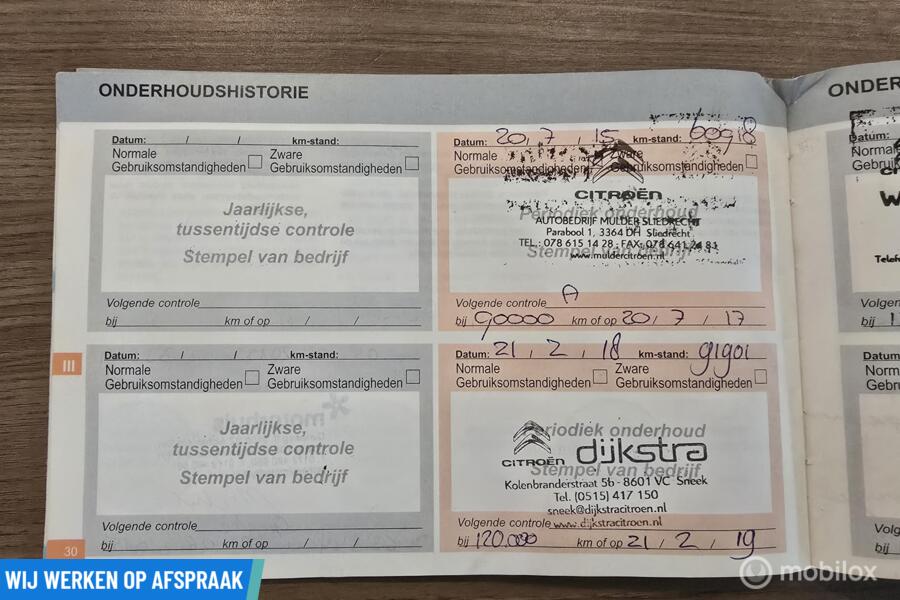 ONDERHOUDSHISTORIE
ONDER
Datum: / / km-stand:
Normale Zware
Gebruiksomstandigheden Gebruiksomstandigheden
Jaarlijkse,
tussentijdse controle
Stempel van bedrijf
Volgende controle
bij km of op / /
Datum: 20, 7, 15 km-stand: 60918
Normale Zware
Gebruiksomstandigheden Gebruiksomstandigheden
CITROËN
Periodiek onderhoud
AUTOBEDRIJF MULDER SLIEDRECHT
Parabool 1, 3364 DH Sliedrecht
TEL.: 078 615 14 28 - FAX: 078 641 24 81
Stempel van bedrijf
www.muldercitroen.nl
A
Volgende controle
bij 90000 km of op 20 / 7 / 17
III
Datum: / / km-stand:
Normale Zware
Gebruiksomstandigheden Gebruiksomstandigheden
Jaarlijkse,
tussentijdse controle
Stempel van bedrijf
Volgende controle
bij km of op / /
30
Datum: 21, 2, 18 km-stand: 91901
Normale Zware
Gebruiksomstandigheden Gebruiksomstandigheden
Periodiek onderhoud
CITROËN dijkstra
Stempel van bedrijf
Kolenbranderstraat 5b - 8601 VC Sneek
Tel. (0515) 417 150
sneek@dijkstracitroen.nl
Volgende controle www.dijkstracitroen.nl
bij 120.000 km of op 21 / 2 / 19
Datum:
Norm
Gebruik
W
Telef
Volgen
bij
Datum
Norm
Gebrui
Volge
bij
WIJ WERKEN OP AFSPRAAK
mobilox